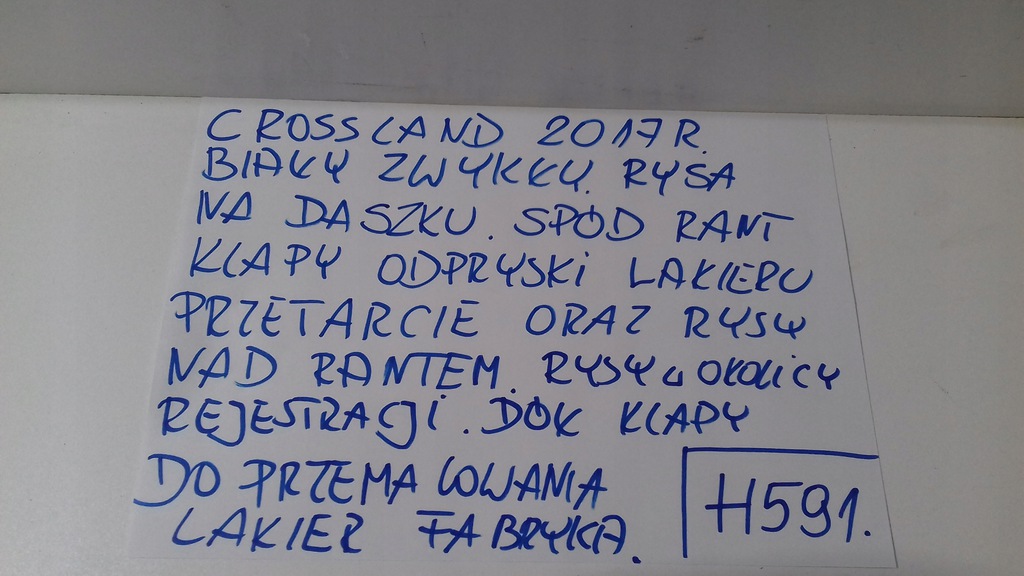 CROSSLAND 2017R.
BIAŁY ZWYKŁY. RYSA
NA DASZKU. SPÓD RANT
KLAPY ODPRYSKI LAKIERU
PRZETARCIE ORAZ RYSY
NAD RANTEM. RYSY W OKOLICY
REJESTRACJI. DÓŁ KLAPY
DO PRZEMALOWANIA
LAKIER FABRYKA.
H591.